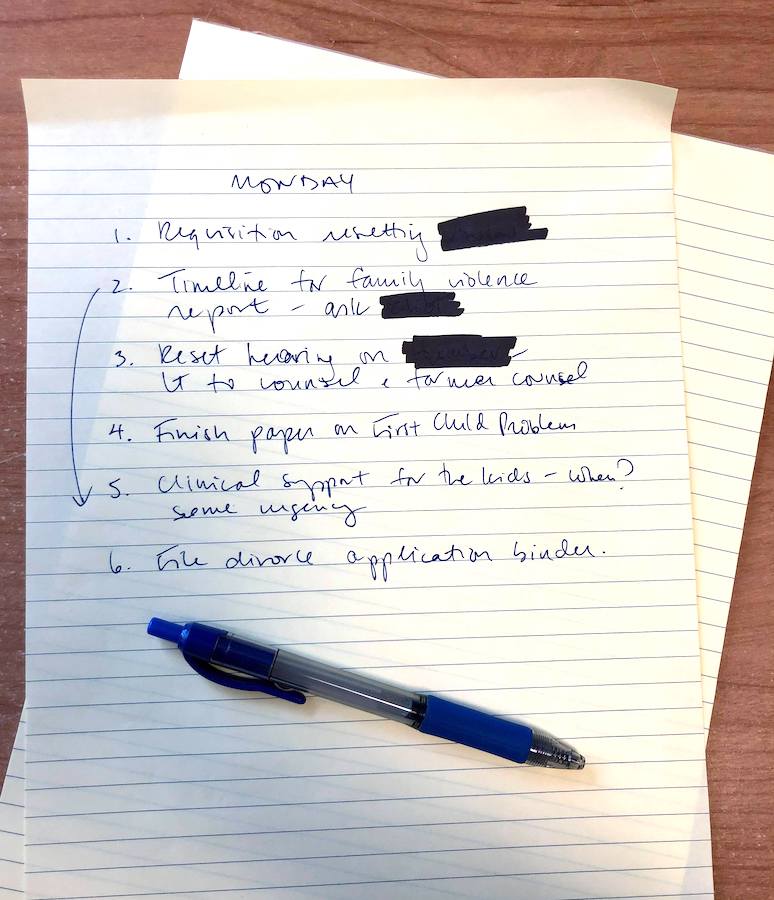 MONDAY
1. Requisition resetting
2. Timeline for family violence
report - ask
3. Reset hearing on
Lt to counsel & former counsel
4. Finish paper on First Child Problem
5. Clinical support for the kids - when?
some urgency
6. File divorce application binder.